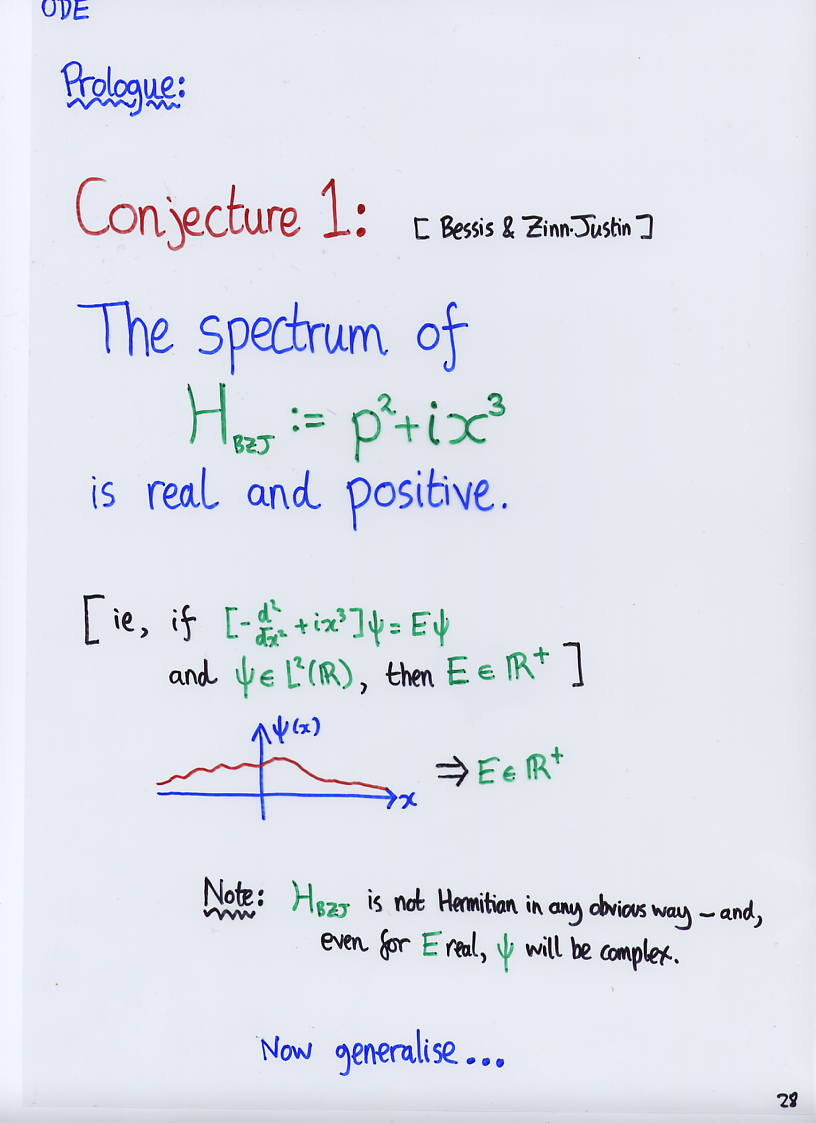 ODE
Prologue:
Conjecture 1: [Bessis & Zinn-Justin]
The spectrum of
H_BZJ := p²+ix³
is real and positive.
[ie, if [-d²/dx² + ix³]ψ = Eψ
and ψ ∈ L²(ℝ), then E ∈ ℝ⁺]
ψ(x)
⇒ E ∈ ℝ⁺
x
Note: H_BZJ is not Hermitian in any obvious way – and,
even for E real, ψ will be complex.
Now generalise...
28